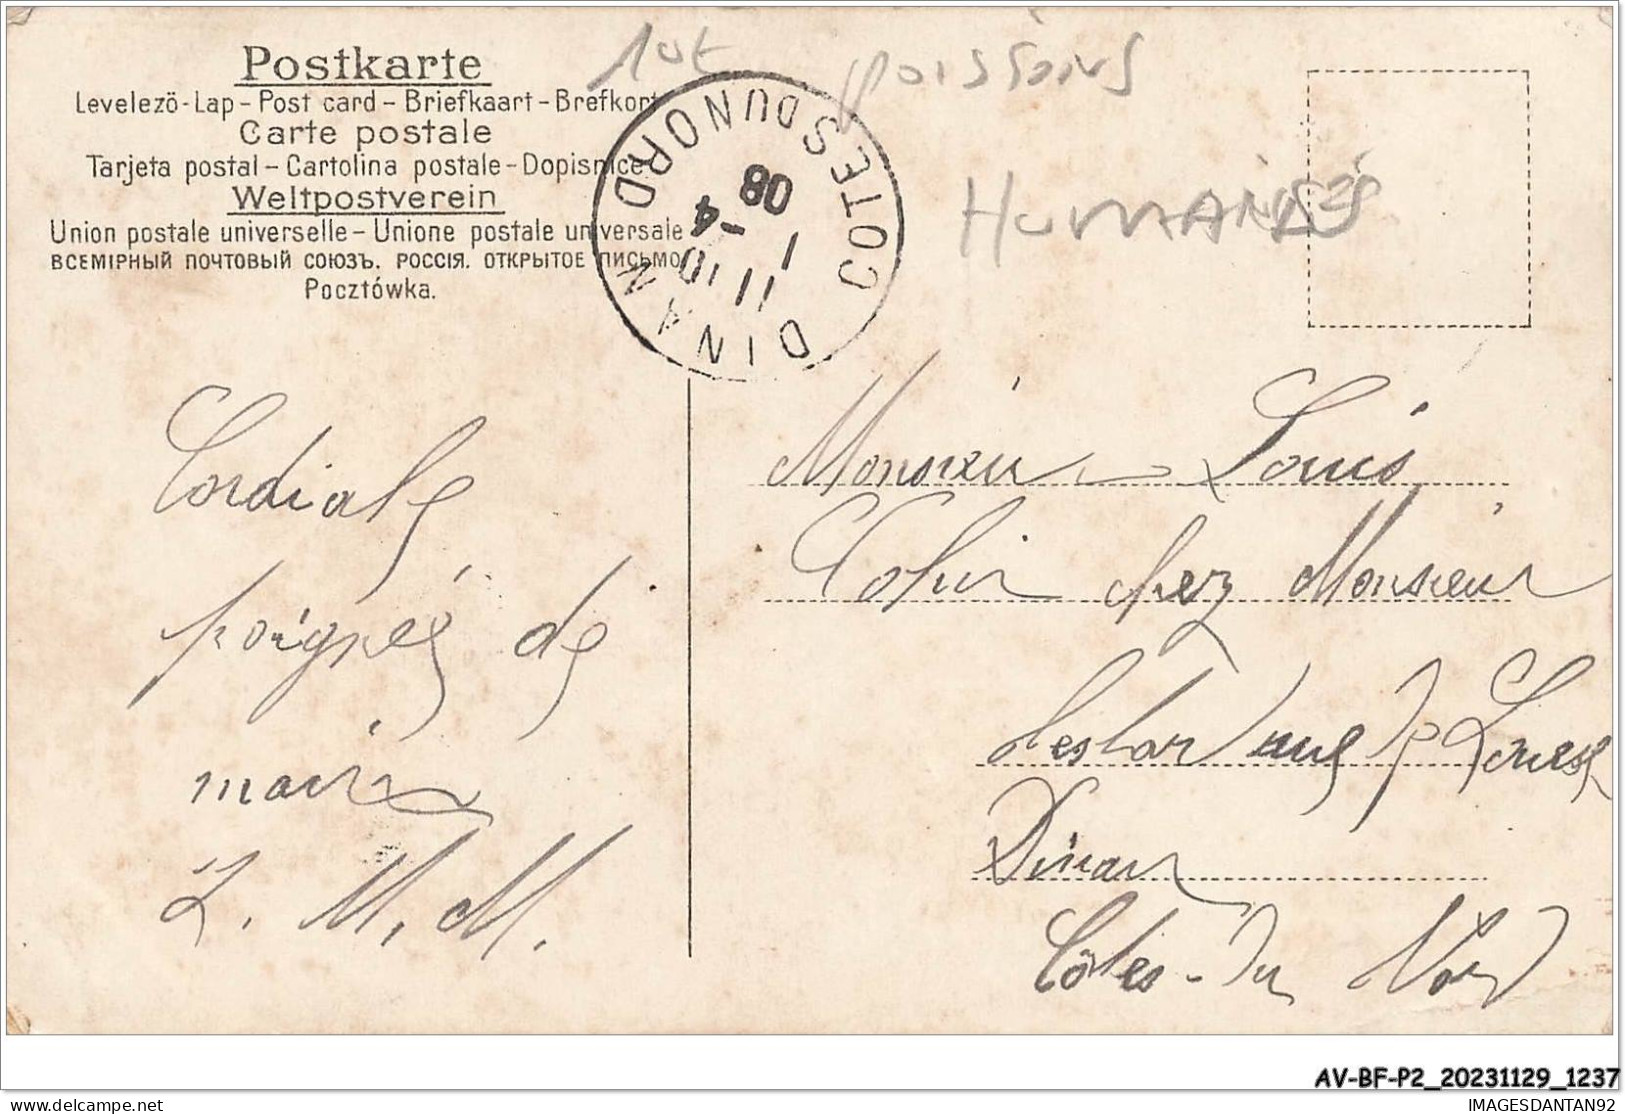 Postkarte
Levelezö-Lap - Post card - Briefkaart - Brefkort
Carte postale
Tarjeta postal - Cartolina postale - Dopisnice
Weltpostverein
Union postale universelle - Unione postale universale
ВСЕМІРНЫЙ ПОЧТОВЫЙ СОЮЗЪ. РОССІЯ. ОТКРЫТОЕ ПИСЬМО
Pocztówka.
lot poissons
HUMANISÉS
DINAN COTES DU NORD
11 10
1 -4
08
Cordiale
poignée de
main
L. M. M.
Monsieur Louis
Colin chez Monsieur
rue
Dinan
Côtes-du Nord
AV-BF-P2_20231129_1237
delcampe.net
IMAGESDANTAN92